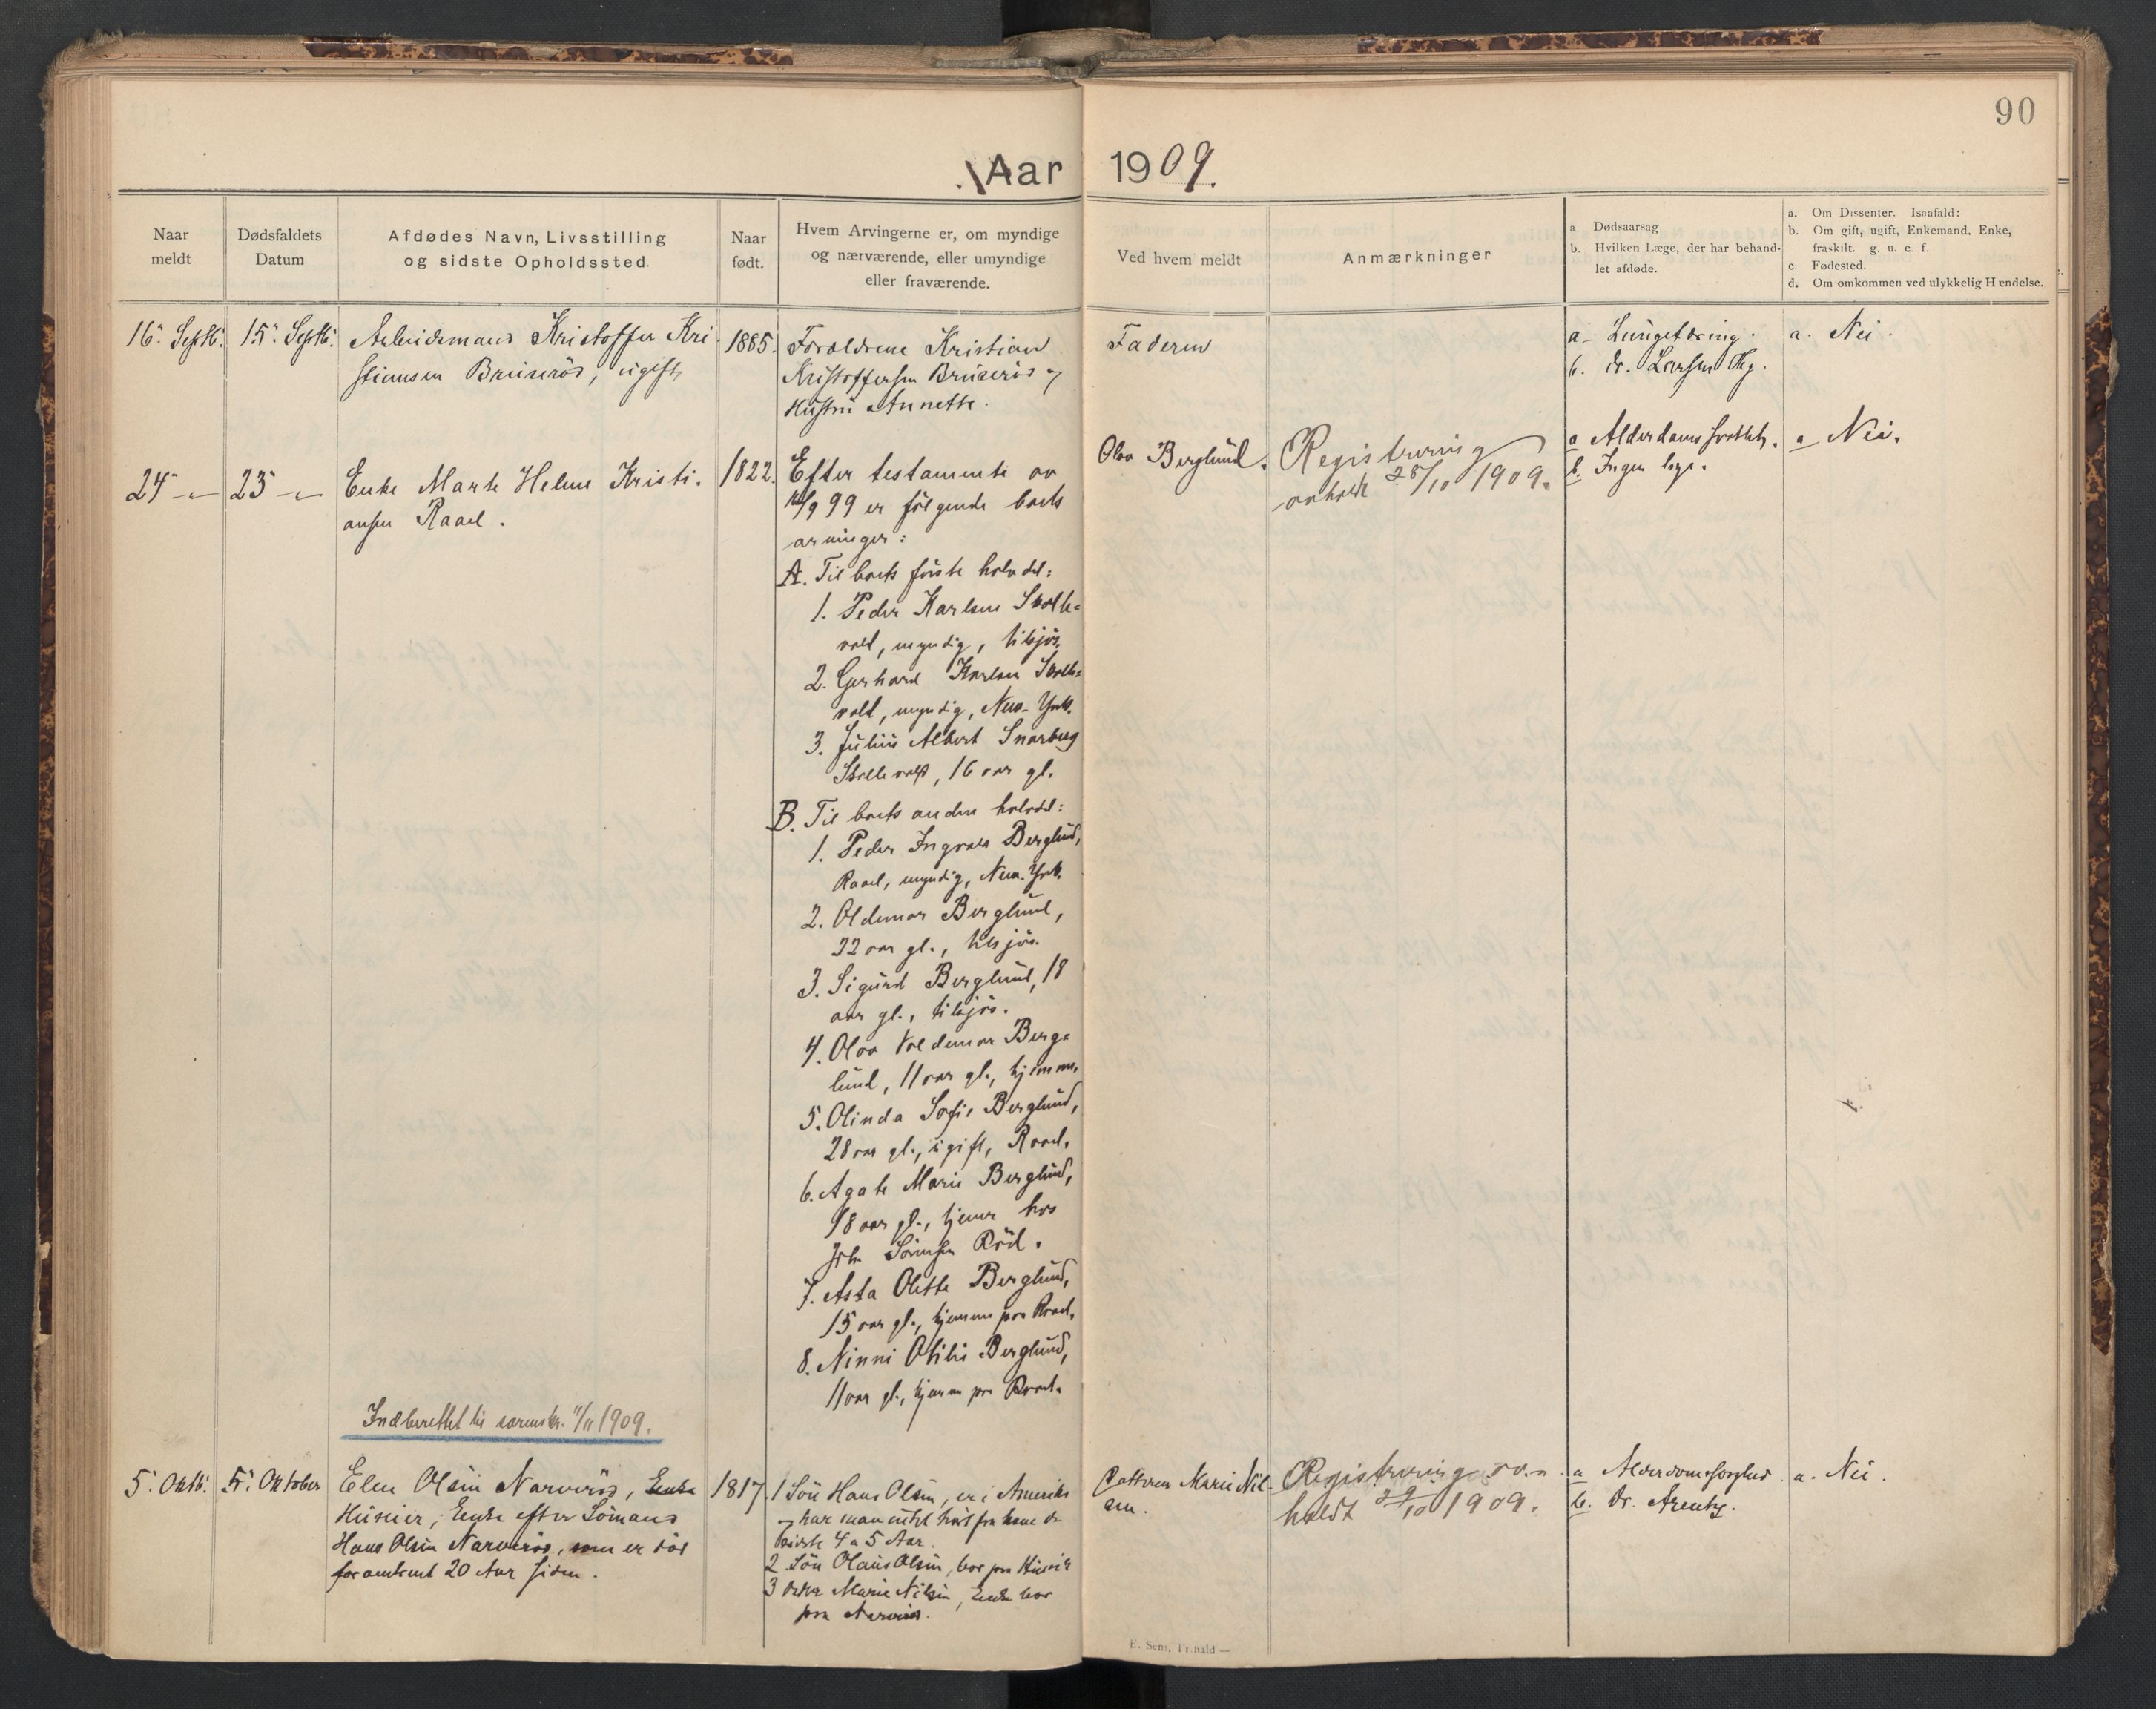 90
Aar 1909.
Naar meldt
Dødsfaldets Datum
Afdødes Navn, Livsstilling
og sidste Opholdssted.
Naar født.
Hvem Arvingerne er, om myndige
og nærværende, eller umyndige
eller fraværende.
Ved hvem meldt
Anmærkninger
a Dødsaarsag
b. Hvilken Læge, der har behand-
let afdøde.
a. Om Dissenter. Isaafald:
b. Om gift, ugift, Enkemand, Enke,
fraskilt. g. u. e. f.
c. Fødested.
d. Om omkommen ved ulykkelig Hendelse.
16. Septb. 15. Septb. Arbeidsmand Kristoffer Kri
stiansen Bruserød, ugift
1885.
Forældrene Kristian
Kristoffersen Bruserød og
Hustru Annette.
Faderen
a- Lungetæring.
b. dr. Larsen Tbg.
a. Nei.
24 - 23 - Enke Marte Helene Kristi-
ansen Raael.
1822.
Efter testamente av
/9 99 er følgende boets
arvinger:
A. Til boets første halvdel:
1. Peder Karlsen Skolle-
vold, myndig, tilsjøs.
2. Gerhard Karlsen Skolle-
vold, myndig, New-York.
3. Julius Albert Snarberg
Skollevold, 16 aar gl.
B. Til boets anden halvdel:
1. Peder Ingvald Berglund,
Raael, myndig, New-York.
2. Oldemar Berglund,
22 aar gl., tilsjøs.
3. Sigurd Berglund, 18
aar gl., tilsjøs.
4. Olav Valdemar Berg-
lund, 11 aar gl., hjemme.
5. Olinda Sofie Berglund,
28 aar gl., ugift, Raael.
6. Agate Marie Berglund,
18 aar gl., tjener hos
Sørensen Rød.
7. Asta Olette Berglund,
15 aar gl., hjemme paa Raael.
8. Ninni Otilie Berglund,
11 aar gl., hjemme paa Raael.
Olav Berglund.
Registrering
avholdt 28/10 1909.
a Alderdomssvakhet.
b. Ingen læge.
a Nei.
Indberettet til sorenskr. 1909.
5. Oktb. 5. Oktober Elen Olsen Narverød, Enke
Huseier, Enke efter Sömand
Hans Olsen Narverød, som er död
for omtrent 20 Aar siden.
1817.
1 Sön Hans Olsen, er i Amerika
og har man intet hørt fra ham de
sidste 4 a 5 Aar.
2 Sön Olaus Olsen, bor paa Husvik
3 Datter Marie Nilsen, Enke bor
paa Narverød.
Datteren Marie Nil-
sen.
Registrering av-
holdt 29/10 1909.
a Alderdomssvaghed.
b. Dr. Arentz.
a. Nei.
E. Sem, Fr.hald —